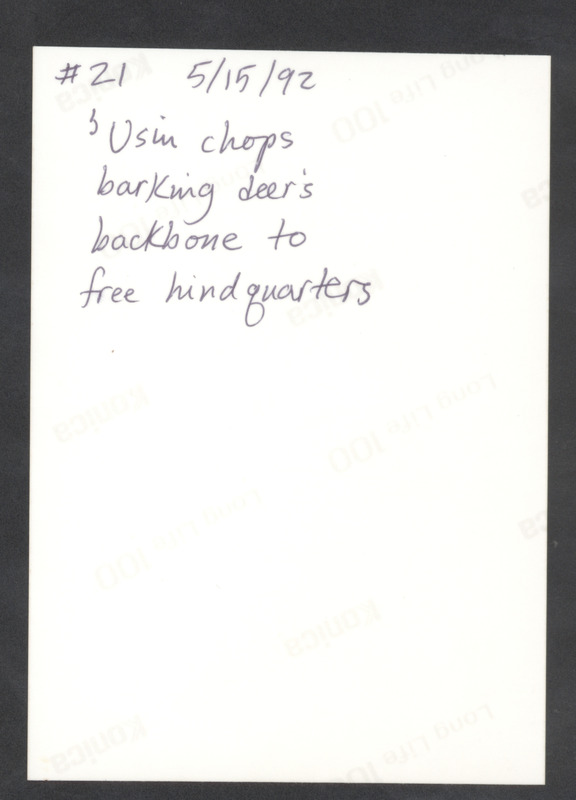 #21 5/15/92
Usin chops
barking deer's
backbone to
free hindquarters
Konica
Long Life 100
Konica
Konica
Konica
Long Life 100
Long Life 100
Konica
Konica
Long Life 100